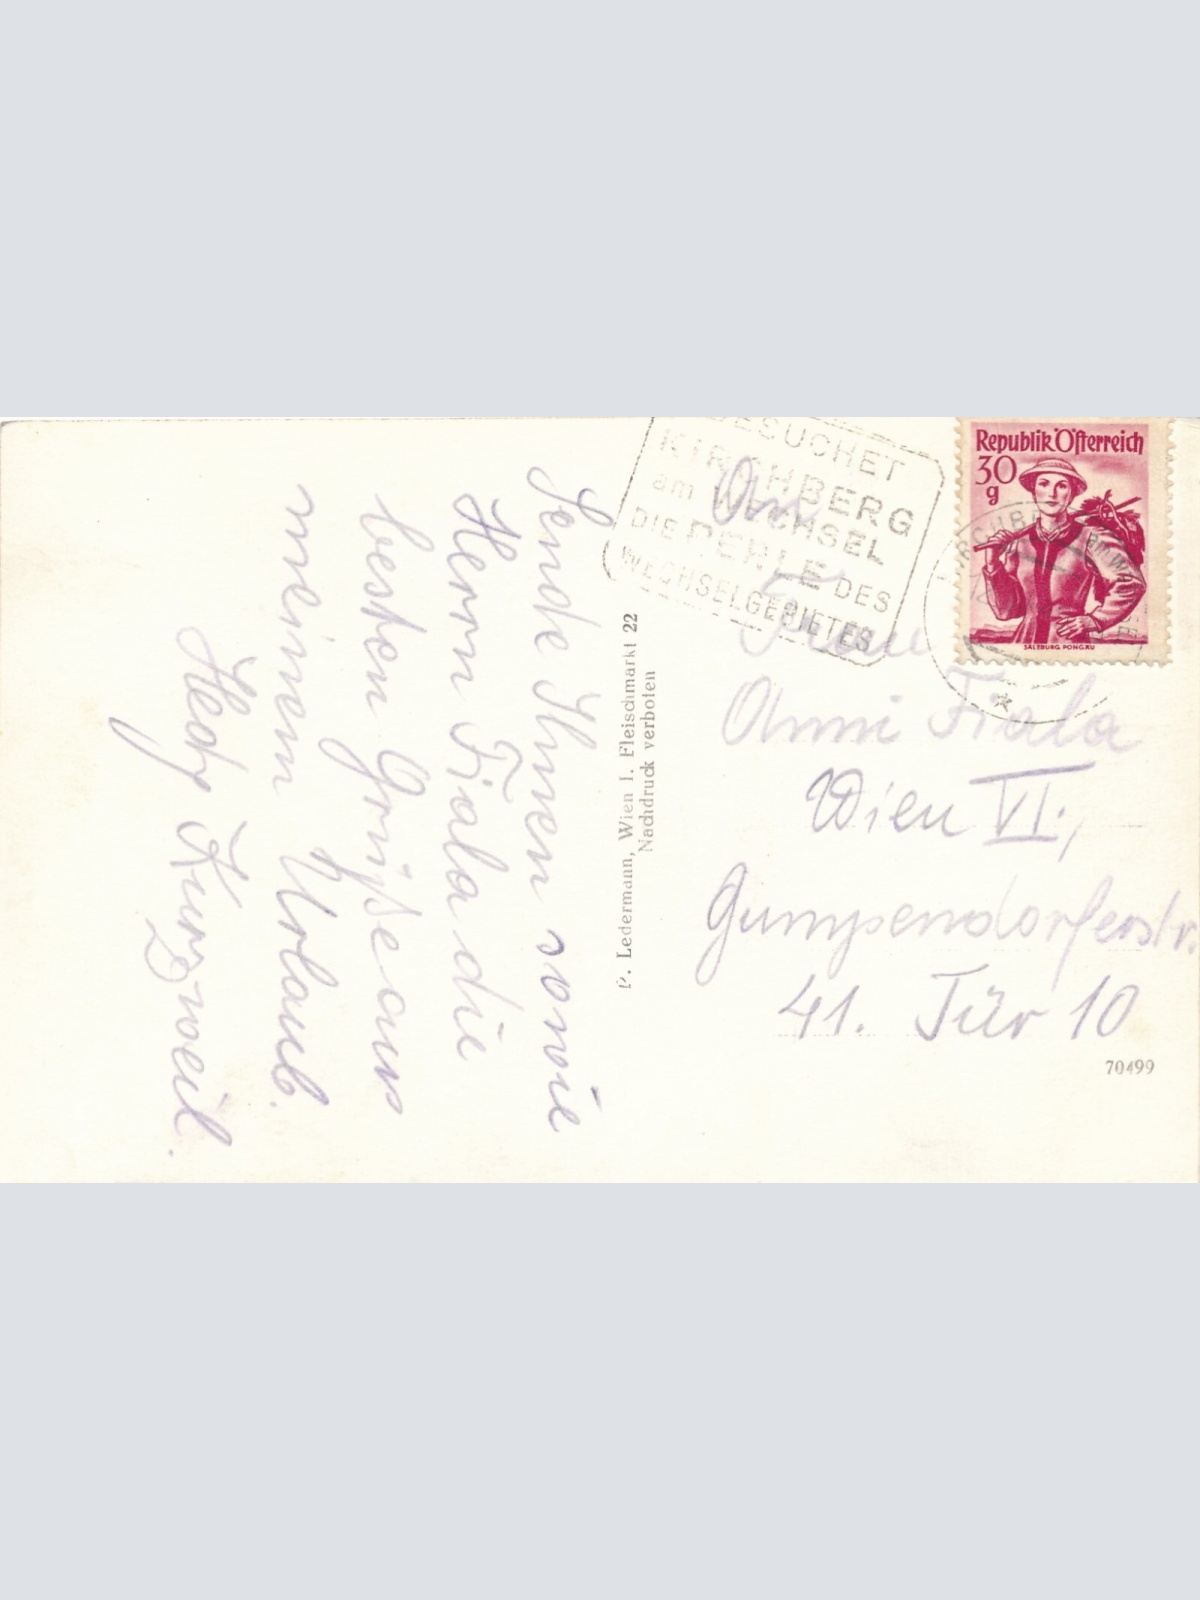 Sende Ihnen sowie
Herrn Fiala die
besten Grüße aus
meinem Urlaub.
Hedy Kurzweil.
P. Ledermann, Wien I. Fleischmarkt 22
Nachdruck verboten
BESUCHET
KIRCHBERG
am WECHSEL
DIE PERLE DES
WECHSELGEBIETES
Republik Österreich
30
g
SALZBURG PONGAU
An
Frau
Anni Fiala
Wien VI.,
Gumpendorferstr.
41. Tür 10
70499